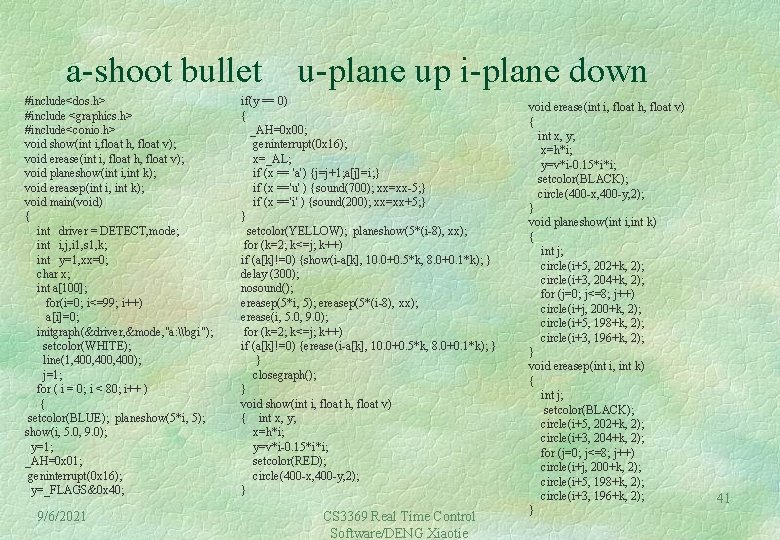 a-shoot bullet u-plane up i-plane down
#include<dos.h>
#include <graphics.h>
#include<conio.h>
void show(int i,float h, float v);
void erease(int i, float h, float v);
void planeshow(int i,int k);
void ereasep(int i, int k);
void main(void)
{
int driver = DETECT,mode;
int i,j,i1,s1,k;
int y=1,xx=0;
char x;
int a[100];
for(i=0; i<=99; i++)
a[i]=0;
initgraph(&driver,&mode,"a:\\bgi");
setcolor(WHITE);
line(1,400,400,400);
j=1;
for ( i = 0; i < 80; i++ )
{
setcolor(BLUE); planeshow(5*i, 5);
show(i, 5.0, 9.0);
y=1;
_AH=0x01;
geninterrupt(0x16);
y=_FLAGS&0x40;
if(y == 0)
{
_AH=0x00;
geninterrupt(0x16);
x=_AL;
if (x == 'a') {j=j+1;a[j]=i;}
if (x =='u' ) {sound(700); xx=xx-5;}
if (x =='i' ) {sound(200); xx=xx+5;}
}
setcolor(YELLOW); planeshow(5*(i-8), xx);
for (k=2; k<=j; k++)
if (a[k]!=0) {show(i-a[k], 10.0+0.5*k, 8.0+0.1*k); }
delay (300);
nosound();
ereasep(5*i, 5); ereasep(5*(i-8), xx);
erease(i, 5.0, 9.0);
for (k=2; k<=j; k++)
if (a[k]!=0) {erease(i-a[k], 10.0+0.5*k, 8.0+0.1*k); }
}
closegraph();
}
void show(int i, float h, float v)
{ int x, y;
x=h*i;
y=v*i-0.15*i*i;
setcolor(RED);
circle(400-x,400-y,2);
}
void erease(int i, float h, float v)
{
int x, y;
x=h*i;
y=v*i-0.15*i*i;
setcolor(BLACK);
circle(400-x,400-y,2);
}
void planeshow(int i,int k)
{
int j;
circle(i+5, 202+k, 2);
circle(i+3, 204+k, 2);
for (j=0; j<=8; j++)
circle(i+j, 200+k, 2);
circle(i+5, 198+k, 2);
circle(i+3, 196+k, 2);
}
void ereasep(int i, int k)
{
int j;
setcolor(BLACK);
circle(i+5, 202+k, 2);
circle(i+3, 204+k, 2);
for (j=0; j<=8; j++)
circle(i+j, 200+k, 2);
circle(i+5, 198+k, 2);
circle(i+3, 196+k, 2);
}
9/6/2021
CS3369 Real Time Control
Software/DENG Xiaotie
41